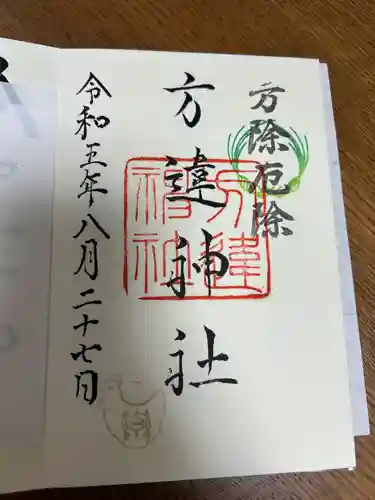 方除厄除
方違神社
令和五年八月二十七日